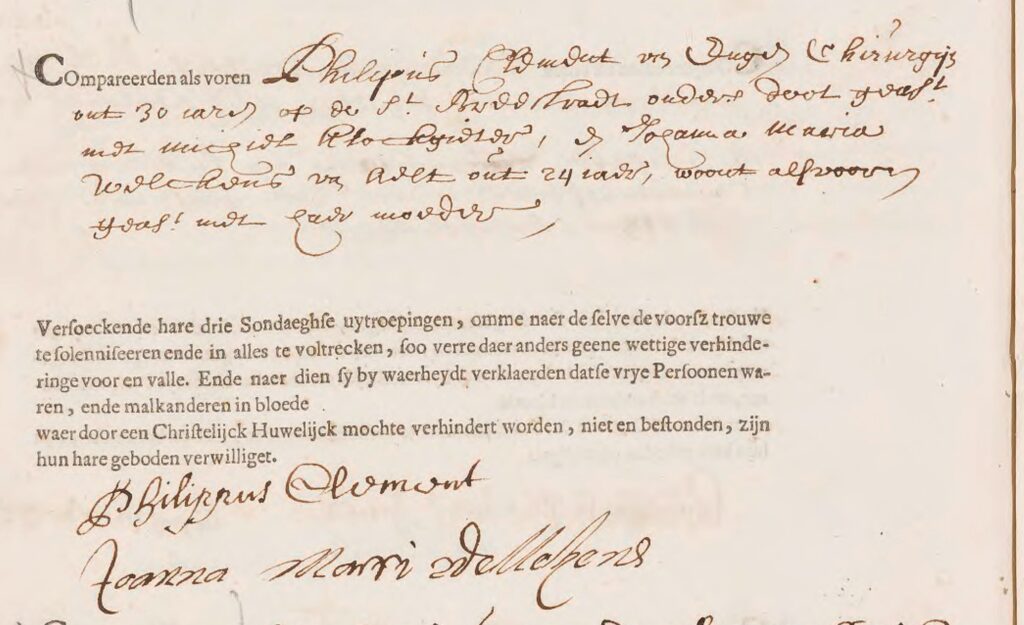 COmpareerden als voren Philipus Clement van Chirurgijn
out 30 iaren op de St. Breestradt ouders doot geast.
met Michiel Klockgieter, en Johanna Maria
Welckens van Delft out 24 iaer, woont als vooren
geast. met haer moeder
Versoeckende hare drie Sondaeghse uytroepingen, omme naer de selve de voorsz trouwe
te solenniseeren ende in alles te voltrecken, soo verre daer anders geene wettige verhinde-
ringe voor en valle. Ende naer dien sy by waerheydt verklaerden datse vrye Persoonen wa-
ren, ende malkanderen in bloede
waer door een Christelijck Huwelijck mochte verhindert worden, niet en bestonden, zijn
hun hare geboden verwilliget.
Philippus Clement
Joanna Marri